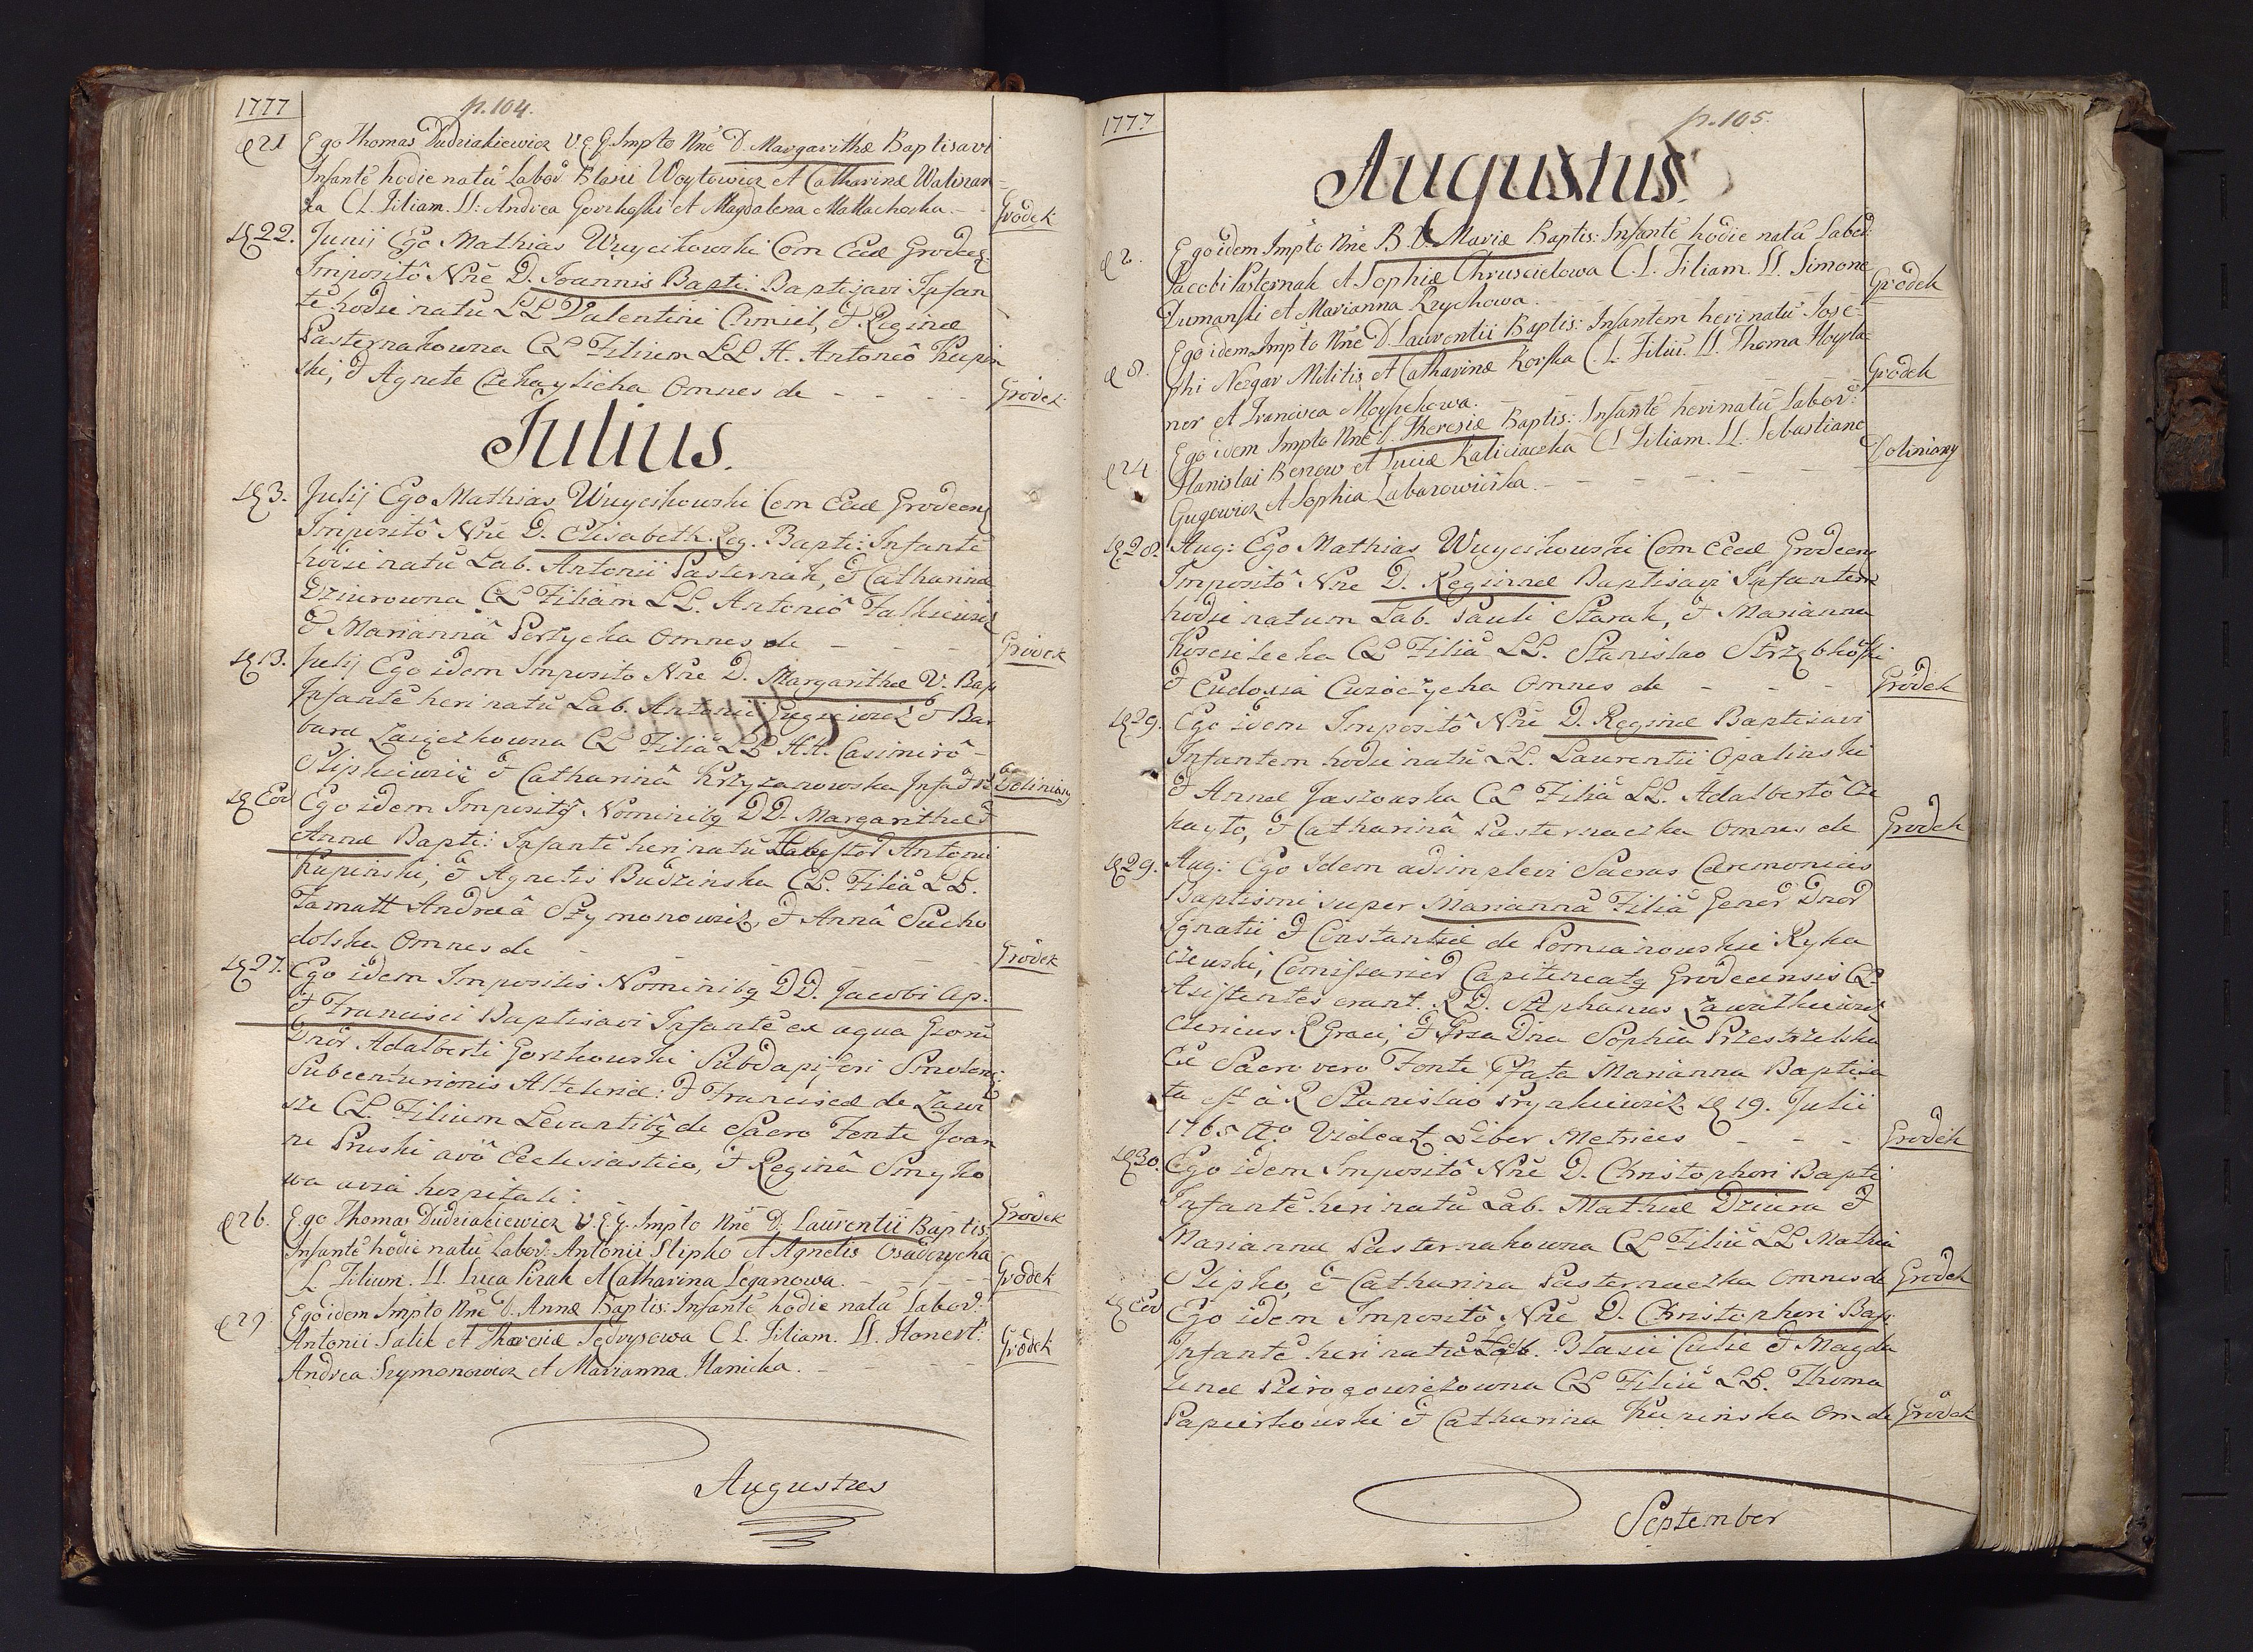 1777
p. 104.
21 Ego Thomas Dudziakiewicz V. E. G. Impto Nne D. Margarithæ Baptisavi
Infantē hodie natū Labor Blasii Woytowicz et Catharinæ
ka C. L. Filiam. LL: Andrea Gorzkoski et Magdalena Małachoska.
Grodek
22. Junij Ego Mathias Wuycikowski Com Eccl Grodecen
Impositô Nñe D. Joannis Bapti: Baptisavi Infan
tē hodie natū LL Valentini Chmiel, & Reginæ
Pasternakowna CL Filium LL H. Antoniô Kupin
ski, & Agnete Czekaylicha Omnes de
Grodek
Julius.
3. Julij Ego Mathias Wuycikowski Com Eccl Grodecen
Impositô Nñe D. Elisabeth Reg. Bapti: Infantē
hodie natū Lab. Antonii Pasternak, & Catharinæ
Dziurowna CL Filiam LL. Antoniô Falkiewicz
& Mariannâ Perzycha Omnes de
Grodek
13. Julij Ego idem Imposito Nñe D. Margarithæ V. Bap
Infantē heri natū Lab. Antonii Gugiewicz & Bar
baræ CL Filiā LL HH. Casimirô
Slipkiewicz & Catharinâ Krzyzanowska
Doliniany
Eod Ego idem Impositis Nominibq DD. Margarithæ &
Annæ Bapti: Infantē heri natū Antonii
Kupinski, & Agnetis Budzinska CL. Filiā LL.
Famatt Andreâ Szymonowicz, & Annâ Sucho
dolska Omnes de
Grodek
27. Ego idem Impositis Nominibq DD. Jacobi Ap.
& Francisci Baptisavi Infantē ex aqua
Dnor Adalberti Gorzkowski Subdapiferi Smolens
Subcenturionis & Franciscæ de Zawi
sze CL. Filium Levantibq de Sacro Fonte Joan
ne Pruski avô Ecclesiastico, & Reginâ Smyko
wa aviâ hospitali:
Grodek
26. Ego Thomas Dudziakiewicz V. E. G. Impto Nñe D. Laurentii Baptis:
Infantē hodie natū Labor: Antonii Slipko et Agnetis Osadczycha
C L Filium. LL. Luca Pirak et Catharina Leganowa.
Grodek
29. Ego idem Impto Nñe D. Annæ Baptis: Infantē hodie natā Labor:
Antonii Salik et Theresiæ Jędrysowa C L. Filiam. LL. Honest:
Andrea Szymonowicz et Marianna Hanicka.
Grodek
Augustus
1777
p. 105.
Augustus.
2. Ego idem Impto Nñe B. V. Mariæ Baptis: Infantē hodie natā Labor:
Jacobi Pasternak et Sophiæ Chruscielowa C. L. Filiam. LL. Simone
Dumanski et Marianna Krychowa.
Grodek
8. Ego idem Impto Nñe D. Laurentii Baptis: Infantem heri natū Jose
phi Nesgar Militis et Catharinæ Korska C. L. Filiū. LL. Thoma
ner et Francisca
Grodek
24. Ego idem Impto Nñe S. Theresiæ Baptis: Infantē heri natā Labor:
Stanislai Bereow et Luciæ Kaliciacka C L Filiam. LL. Sebastiano
Gugewicz et Sophia Labarowicka.
Doliniany
28. Aug: Ego Mathias Wuycikowski Com Eccl Grodecen
Impositô Nñe D. Reginæ Baptisavi Infantem
hodie natum Lab. Pauli Starak, & Marianna
Koscielecka CL Filiā LL. Stanislao Strzębkoski
& Eudoxia Omnes de
Grodek
29. Ego idem Impositô Nñe D. Reginæ Baptisavi
Infantem hodie natū LL. Laurentii Opalinski
& Annæ Jaszowska CL Filiā LL. Adalbertô Cze
kayło, & Catharinâ Pasternacka Omnes de
Grodek
29. Aug: Ego Idem adimplevi Sacras Ceremonias
Baptismi super Mariannâ Filiâ Gener Dnor
Ignatii & Constantiæ de Pomianowskie Ryka
czewski, Comissarior Capitencatq Grodecensis CL.
Asistentes erant. R. D. Stephanus Zawatkiewicz
Clericus R Graci, & Dna Sophia Przestrzelska
Ex Sacro vero Fonte Pfata Marianna Baptiza
ta est à R Stanislao Prynkiewicz 19. Julii
1765 Aº Videat Liber Metrices
Grodek
30. Ego idem Impositô Nñe D. Christophori Bapti
Infantē heri natū Lab. Mathiæ Dziura &
Mariannæ Pasternakowna CL Filiū LL Mathia
Slipko, & Catharina Pasternacka Omnes de
Grodek
Eod Ego idem Impositô Nñe D. Christophori Bap.
Infantē heri natū Lab. Blasii Culic & Magda
lenæ Pirogowiczowna CL Filiū LL. Thoma
Papierkowski & Catharina Kupinska Om de
Grodek
September